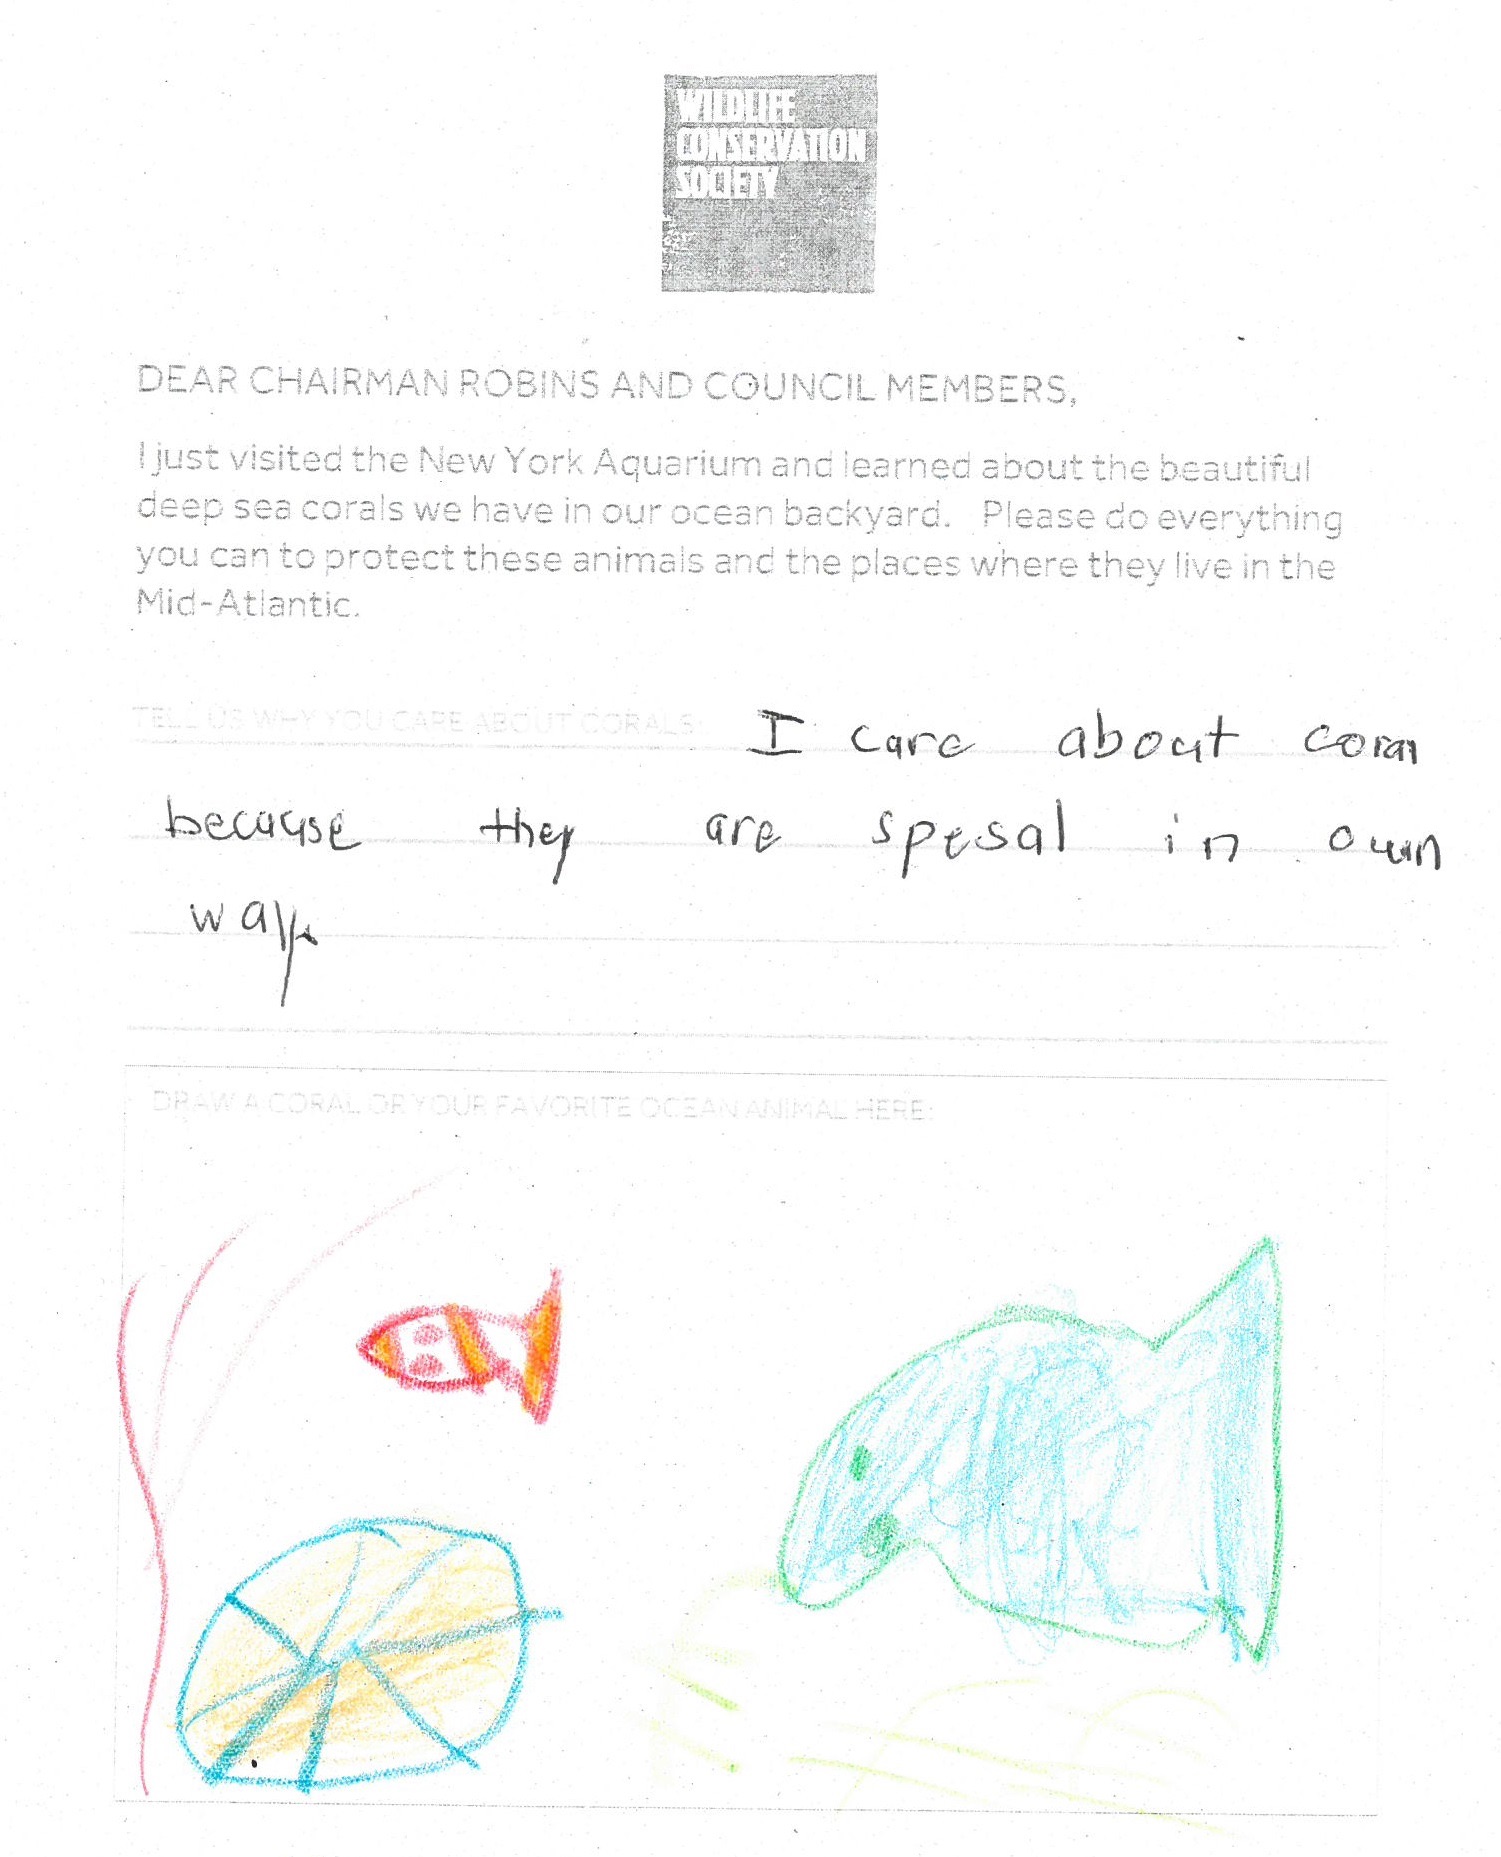 WILDLIFE
CONSERVATION
SOCIETY
DEAR CHAIRMAN ROBINS AND COUNCIL MEMBERS,
I just visited the New York Aquarium and learned about the beautiful
deep sea corals we have in our ocean backyard. Please do everything
you can to protect these animals and the places where they live in the
Mid-Atlantic.
TELL US WHY YOU CARE ABOUT CORALS: I care about coral
because they are spesal in own
way.
DRAW A CORAL OR YOUR FAVORITE OCEAN ANIMAL HERE: